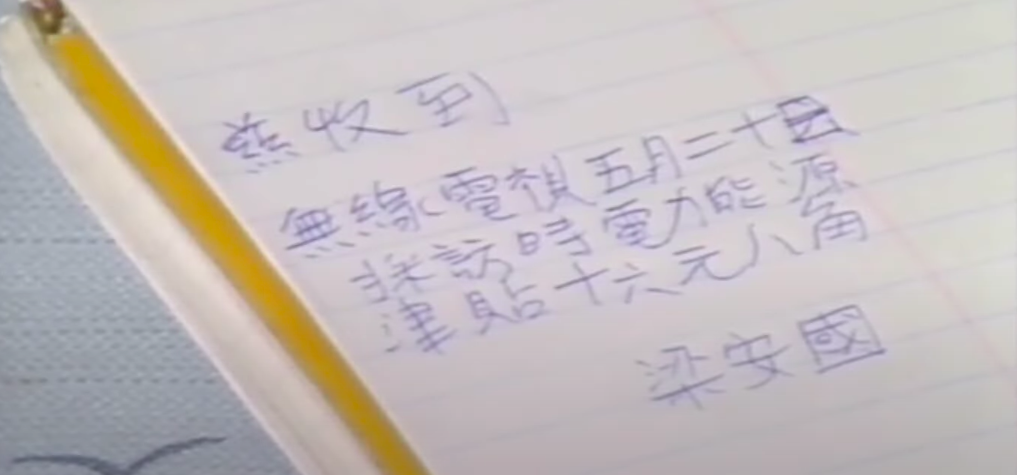 茲收到
無線電視五月二十日
採訪時電力能源
津貼十六元八角
梁安國